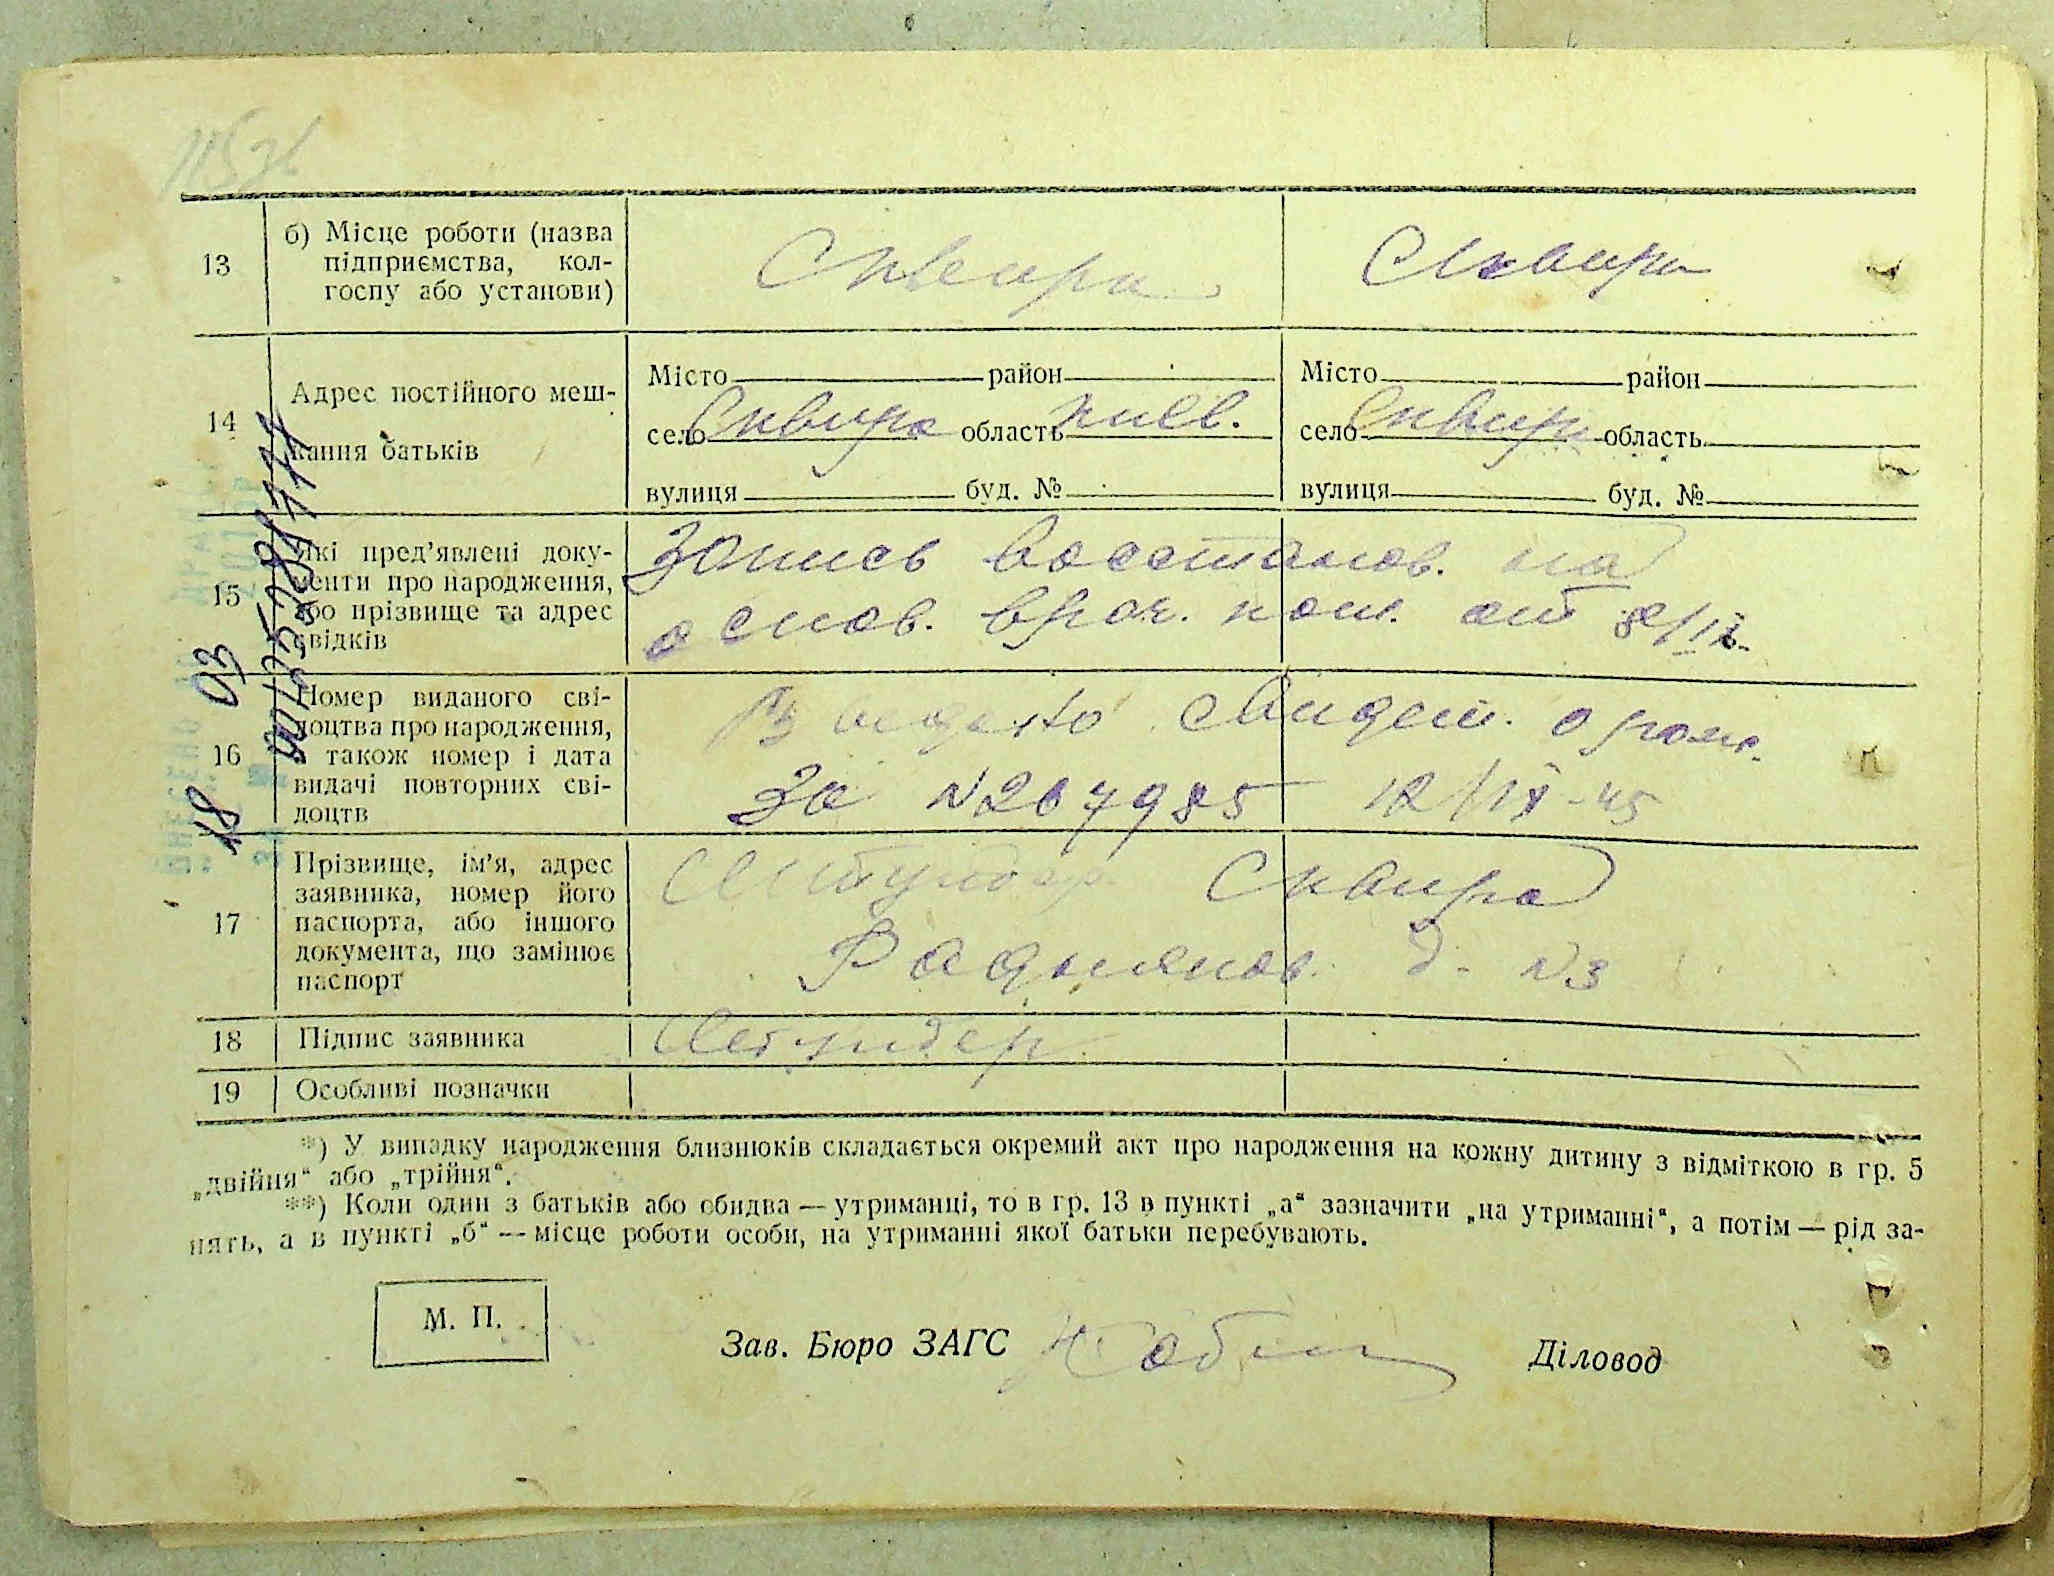 13
б) Місце роботи (назва
підприємства, кол-
госпу або установи)
Сквира
Сквира
14
Адрес постійного меш-
кання батьків
Місто район
село Сквира область Киев.
вулиця буд. №
Місто район
село Сквира область
вулиця буд. №
15
Які пред’явлені доку-
менти про народження,
або прізвище та адрес
свідків
Запись восстанов. на
основ. врач. ком. от 8/IX
16
Номер виданого сві-
доцтва про народження,
а також номер і дата
видачі повторних сві-
доцтв
Выдано свидет. о рожд.
За №267985 12/IX-45
17
Прізвище, ім’я, адрес
заявника, номер його
паспорта, або іншого
документа, що замінює
паспорт
Сквира
Радянськ. д. №3
18
Підпис заявника
19
Особливі позначки
*) У випадку народження близнюків складається окремий акт про народження на кожну дитину з відміткою в гр. 5
„двійня“ або „трійня“.
**) Коли один з батьків або обидва — утриманці, то в гр. 13 в пункті „а“ зазначити „на утриманні“, а потім — рід за-
нять, а в пункті „б“ — місце роботи особи, на утриманні якої батьки перебувають.
М. П.
Зав. Бюро ЗАГС
Діловод